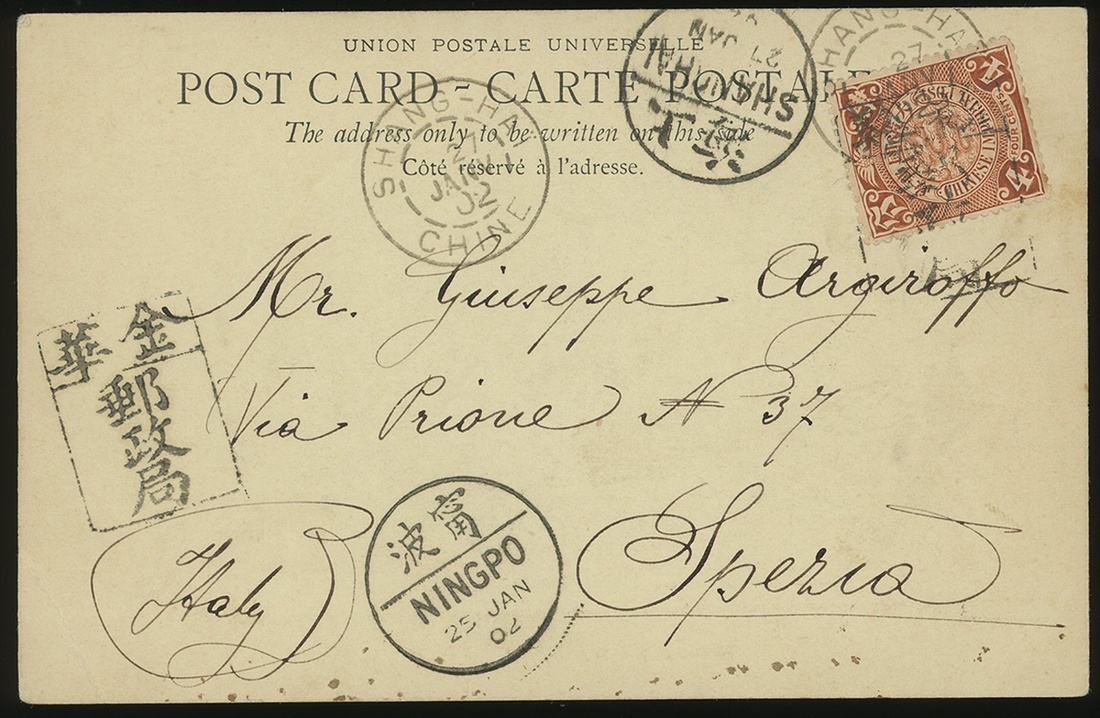 UNION POSTALE UNIVERSELLE
POST CARD - CARTE POSTALE
The address only to be written on this side
Côté réservé à l'adresse.
SHANG-HAI
27
JANV
02
CHINE
SHANGHAI
27 JAN
SHANG-HAI
27
4 4
CHINESE IMPERIAL POST
Mr. Giuseppe Argiroffo
Via Prione N 37
Spezia
Italy
金華
郵政局
甯波
NINGPO
25 JAN
02